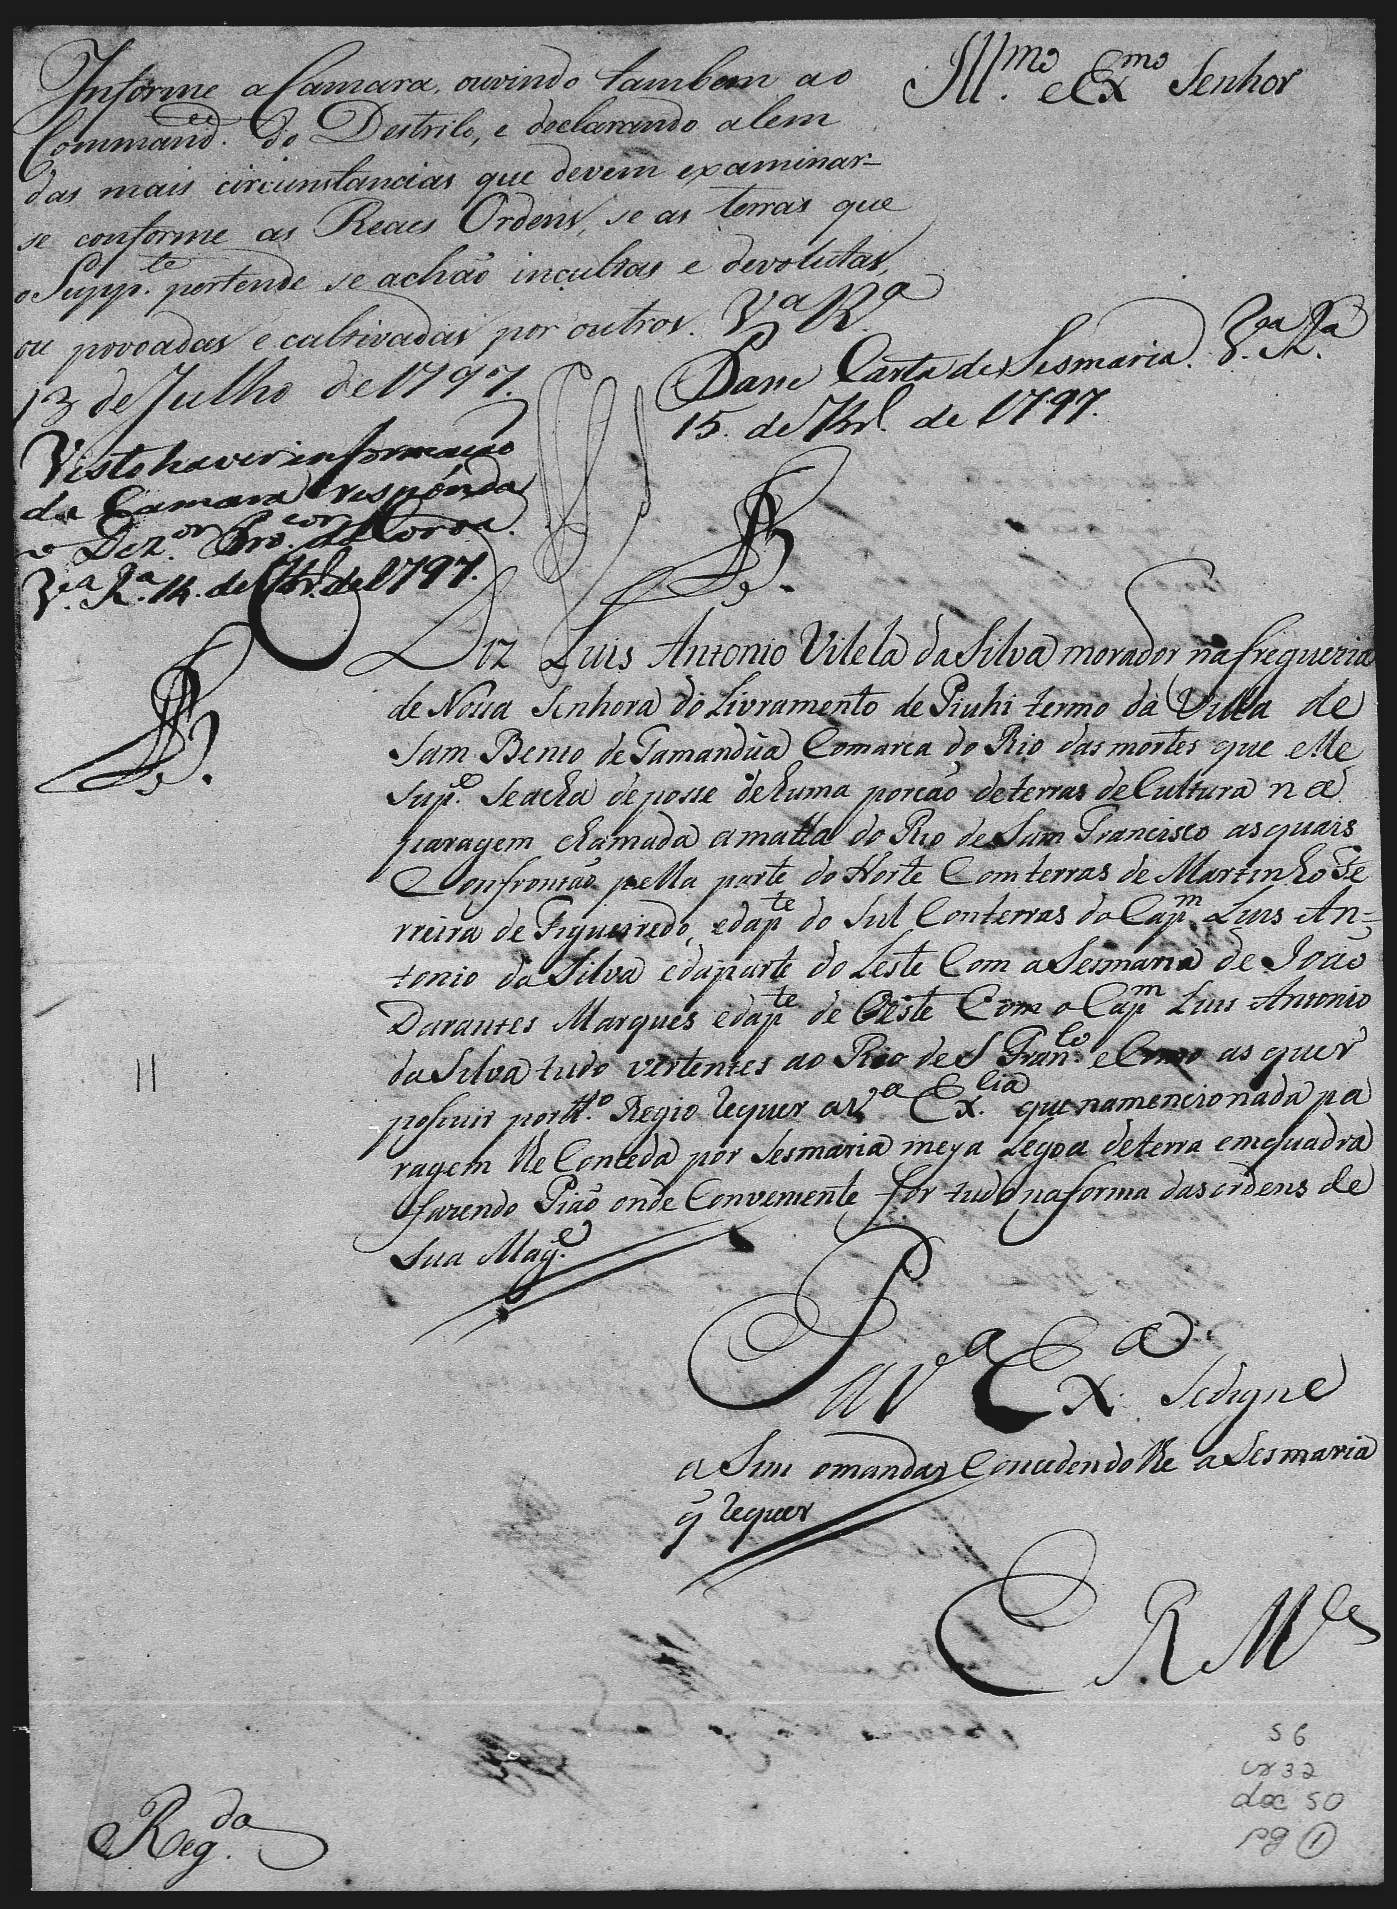 Informe a Camara, ouvindo tambem ao
Command.e do Destrito, e declarando alem
das mais circunstancias que devem examinar-
se conforme as Reaes Ordens, se as terras que
o Supp.te pertende se achaõ incultas e devolutas,
ou povoadas e cultivadas por outros. V.a R.a
13 de Julho de 1797.
Ill.mo e Ex.mo Senhor
Passe Carta de Sesmaria. V.a R.a
15. de de 1797.
Visto haver informação
da Camara responda
o Dez.or Pro.cor da Coroa.
V.a R.a 14. de de 1797.
Diz Luis Antonio Vilela da Silva morador na freguezia
de Nossa Senhora do Livramento de Piuhi termo da Villa de
Sam Bento de Tamandúa Comarca do Rio das mortes que elle
Sup.e Se acha de posse de huma porcaõ de terras de Cultura na
paragem chamada a matta do Rio de Sam Francisco as quais
Confrontaõ pella parte do Norte Com terras de Martinho Fe
rreira de Figueiredo, e da p.te do Sul Con terras do Cap.m Luis An=
tonio da Silva e da parte do Leste Com a Sesmaria de Joaõ
Darantes Marques e da p.te de Oeste Com o Cap.m Luis Antonio
da Silva tudo vertentes ao Rio de S Fran.co e Como as quer
possuir por tt.o Regio requer a V.a Ex.cia que na mencionada pa
ragem lhe Conceda por Sesmaria meya Legoa de terra em quadra
fazendo Piaõ onde Conveniente for tudo na forma das ordens de
Sua Mag.e
P a V.a Ex.a Se digne
a Sim o mandar Concedendo lhe a Sesmaria
q̃ requer
E R M.ce
11
Reg.da
S6
cx 32
doc 50
pg 1